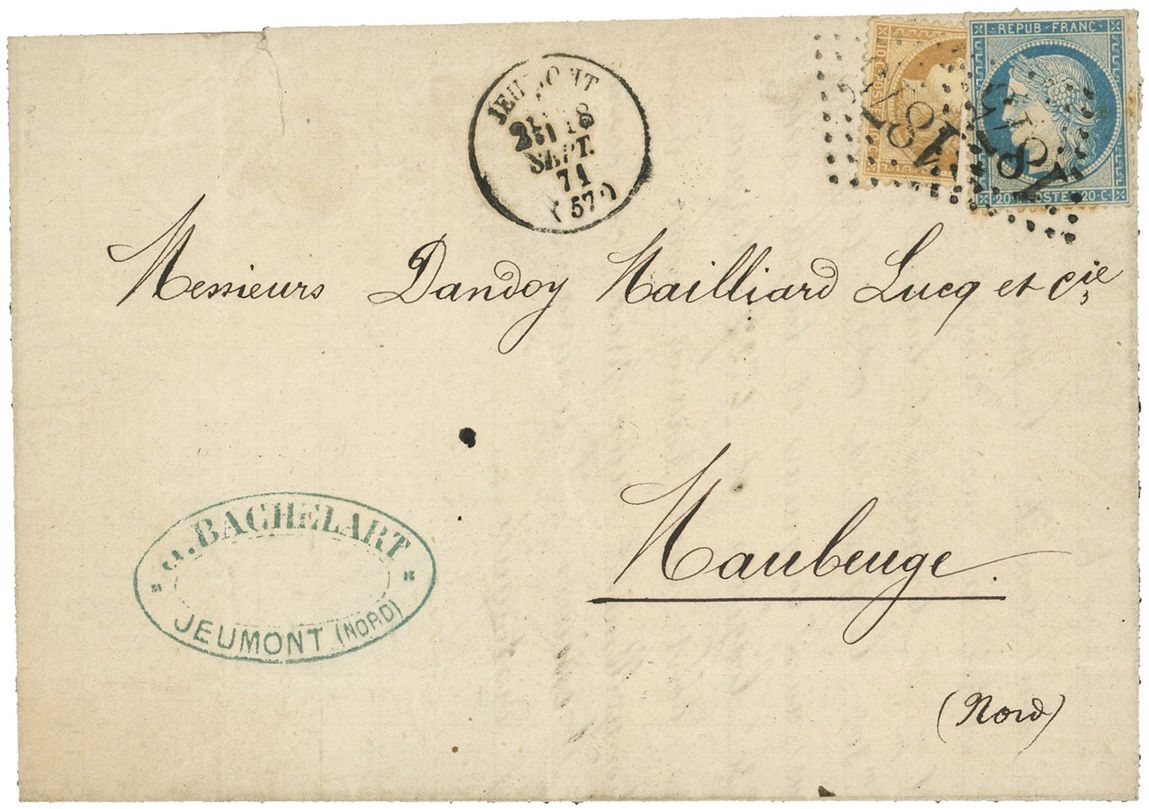 REPUB·FRANC
20·C POSTES 20·C
1875
1875
JEUMONT
18
SEPT.
71
(57)
Messieurs Dandoy Mailliard Lucq et Cie
Maubeuge.
(Nord)
BACHELART
JEUMONT (NORD)